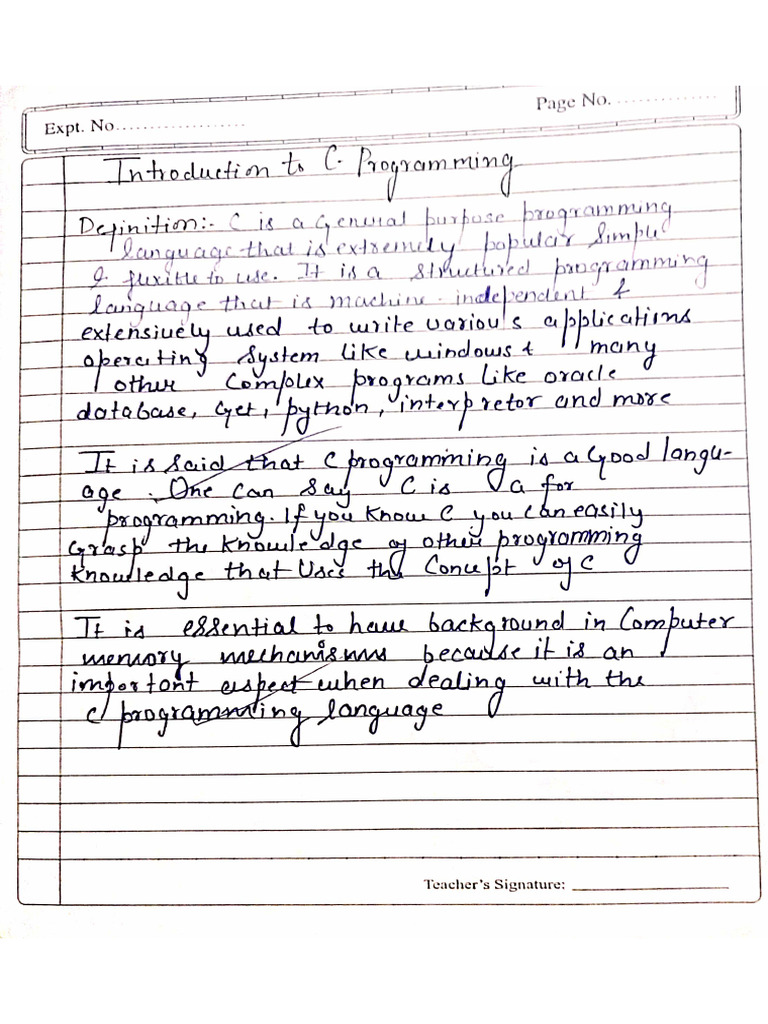 Expt. No...................
Page No. ...............
Introduction to C Programming
Definition:- C is a General purpose programming
language that is extremely popular simple
& flexible to use. It is a structured programming
language that is machine-independent &
extensively used to write various applications
operating system like windows & many
other complex programs like oracle
database, Get, python, interpretor and more
It is said that C programming is a Good langu-
age. One can say C is a for
programming. If you know C you can easily
Grasp the knowledge of other programming
knowledge that uses the concept of C
It is essential to have background in Computer
memory mechanisms because it is an
important aspect when dealing with the
C programming language
Teacher's Signature: ____________________